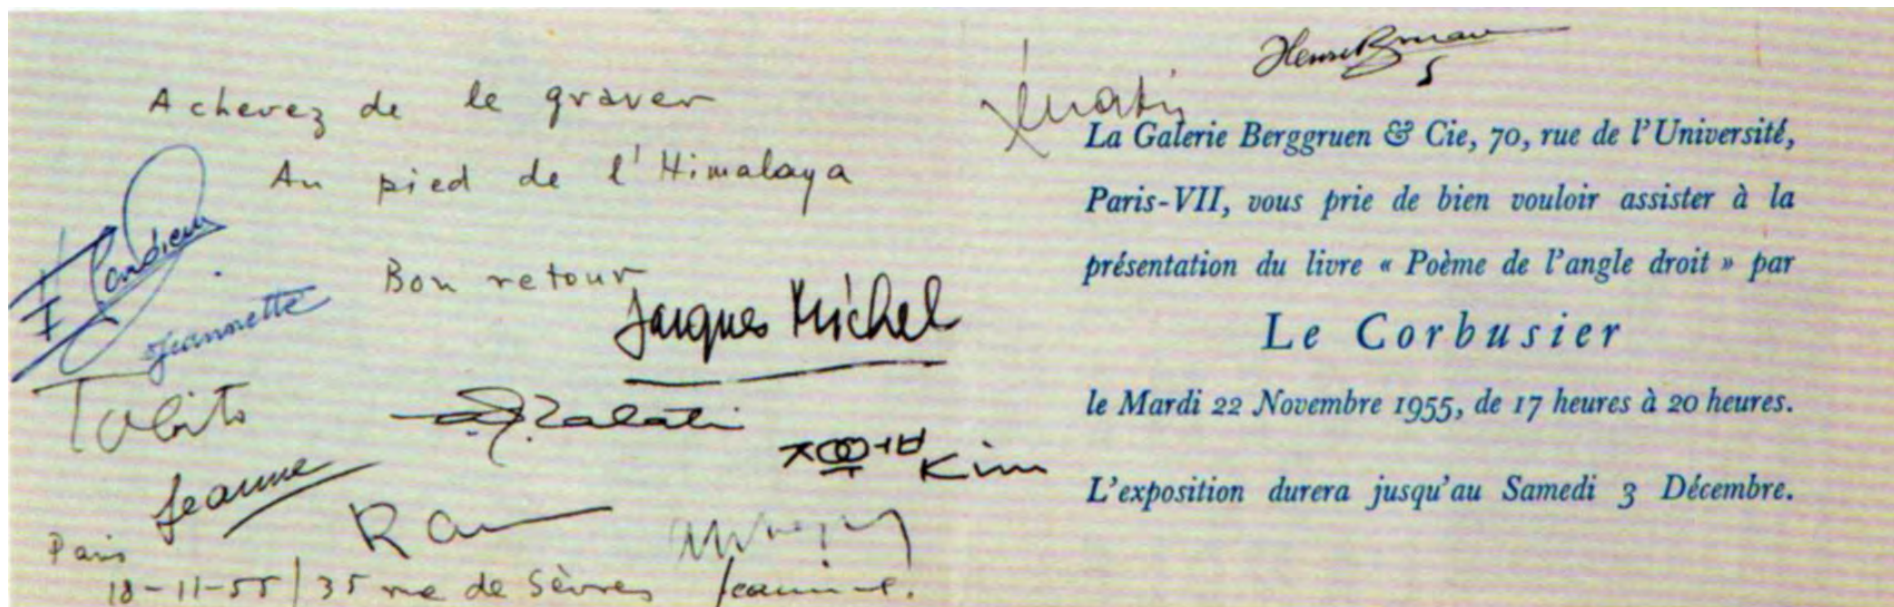 Achevez de le graver
Au pied de l'Himalaya
Bon retour
Jacques Michel
Jeannette
Tobito
Kim
Jeanne
Paris
18-11-55 / 35 rue de Sèvres
Jeannine.
La Galerie Berggruen & Cie, 70, rue de l'Université,
Paris-VII, vous prie de bien vouloir assister à la
présentation du livre « Poème de l'angle droit » par
Le Corbusier
le Mardi 22 Novembre 1955, de 17 heures à 20 heures.
L'exposition durera jusqu'au Samedi 3 Décembre.